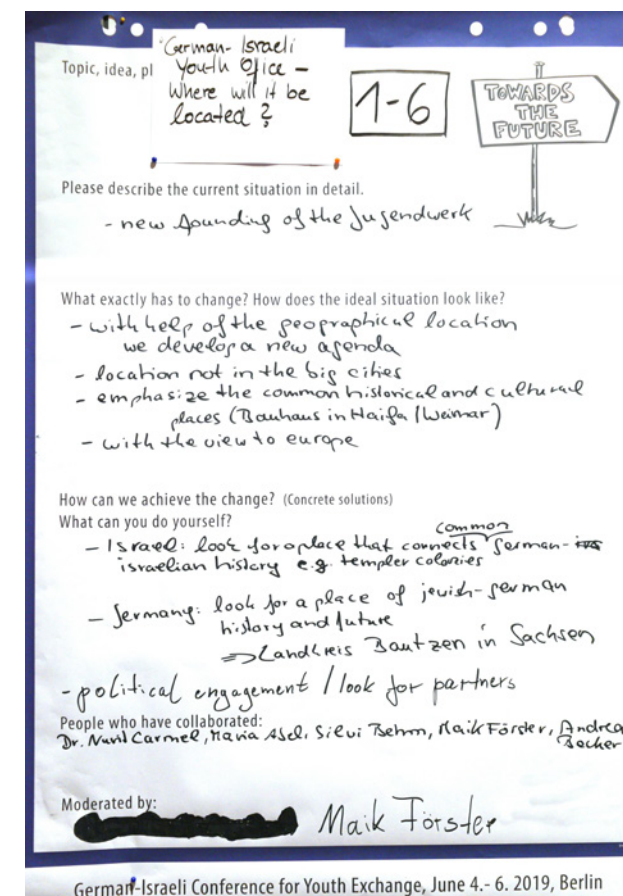 Topic, idea, pl
German-Israeli
Youth Ofice –
Where will it be
located?
1-6
TOWARDS
THE
FUTURE
Please describe the current situation in detail.
- new founding of the Jugendwerk
What exactly has to change? How does the ideal situation look like?
- with help of the geographical location
we develop a new agenda
- location not in the big cities
- emphasize the common historical and cultural
places (Bauhaus in Haifa / Weimar)
- with the view to europe
How can we achieve the change? (Concrete solutions)
What can you do yourself?
common
- Israel: look for a place that connects german-
israelian history e.g. templer colonies
- Germany: look for a place of jewish-german
history and future
=> Landkreis Bautzen in Sachsen
- political engagement / look for partners
People who have collaborated:
Dr. Nurit Carmel, Maria Abel, Silvi Behm, Maik Förster, Andrea
Becker
Moderated by:
Maik Förster
German-Israeli Conference for Youth Exchange, June 4.- 6. 2019, Berlin